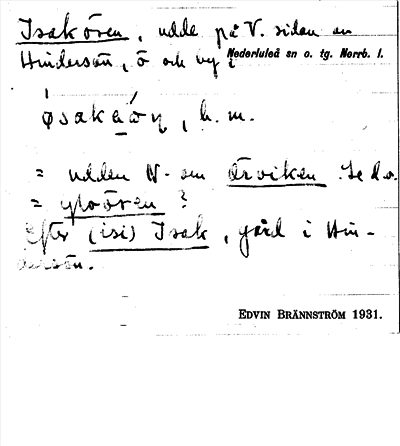 Isakören, udde på V. sidan av
Hindersön, ö och by i Nederluleå sn o. tg. Norrb. l.
b. m.
= udden N. om Örviken. Se d.o.
= ytoören ?
Efter (isi) Isak, gård i Hin-
dersön.
EDVIN BRÄNNSTRÖM 1931.